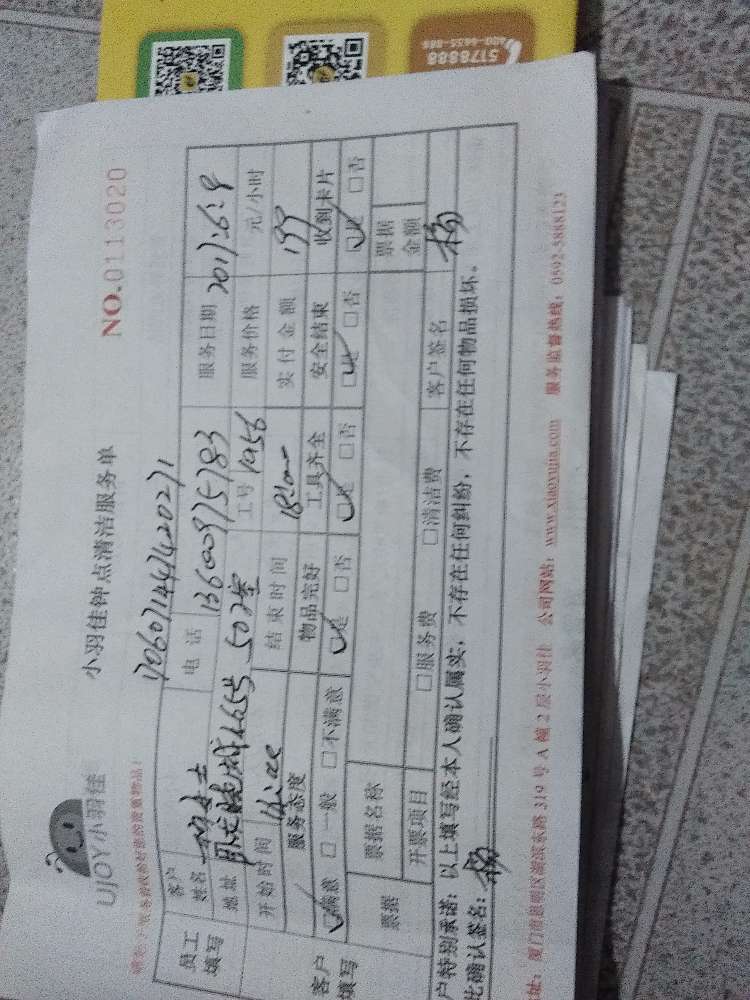 UJOY小羽佳
小羽佳钟点清洁服务单
NO.0113020
员工填写
客户姓名
电话 13600975783
服务日期 2017.6.9
地址 502室
工号 1956
服务价格 元/小时
开始时间
结束时间 18:00
实付金额 199
客户填写
服务态度 物品完好 工具齐全 安全结束 收到卡片
☑满意 □一般 □不满意 ☑是 □否 ☑是 □否 ☑是 □否 ☑是 □否
票据 票据名称 票据金额
开票项目 □服务费 □清洁费 客户签名 杨
户特别承诺：以上填写经本人确认属实，不存在任何纠纷，不存在任何物品损坏。
此确认签名：杨
址：厦门市思明区湖滨东路 319 号 A 幢 2 层小羽佳 公司网站：www.xiaoyujia.com 服务监督热线：0592-5888123
5178888